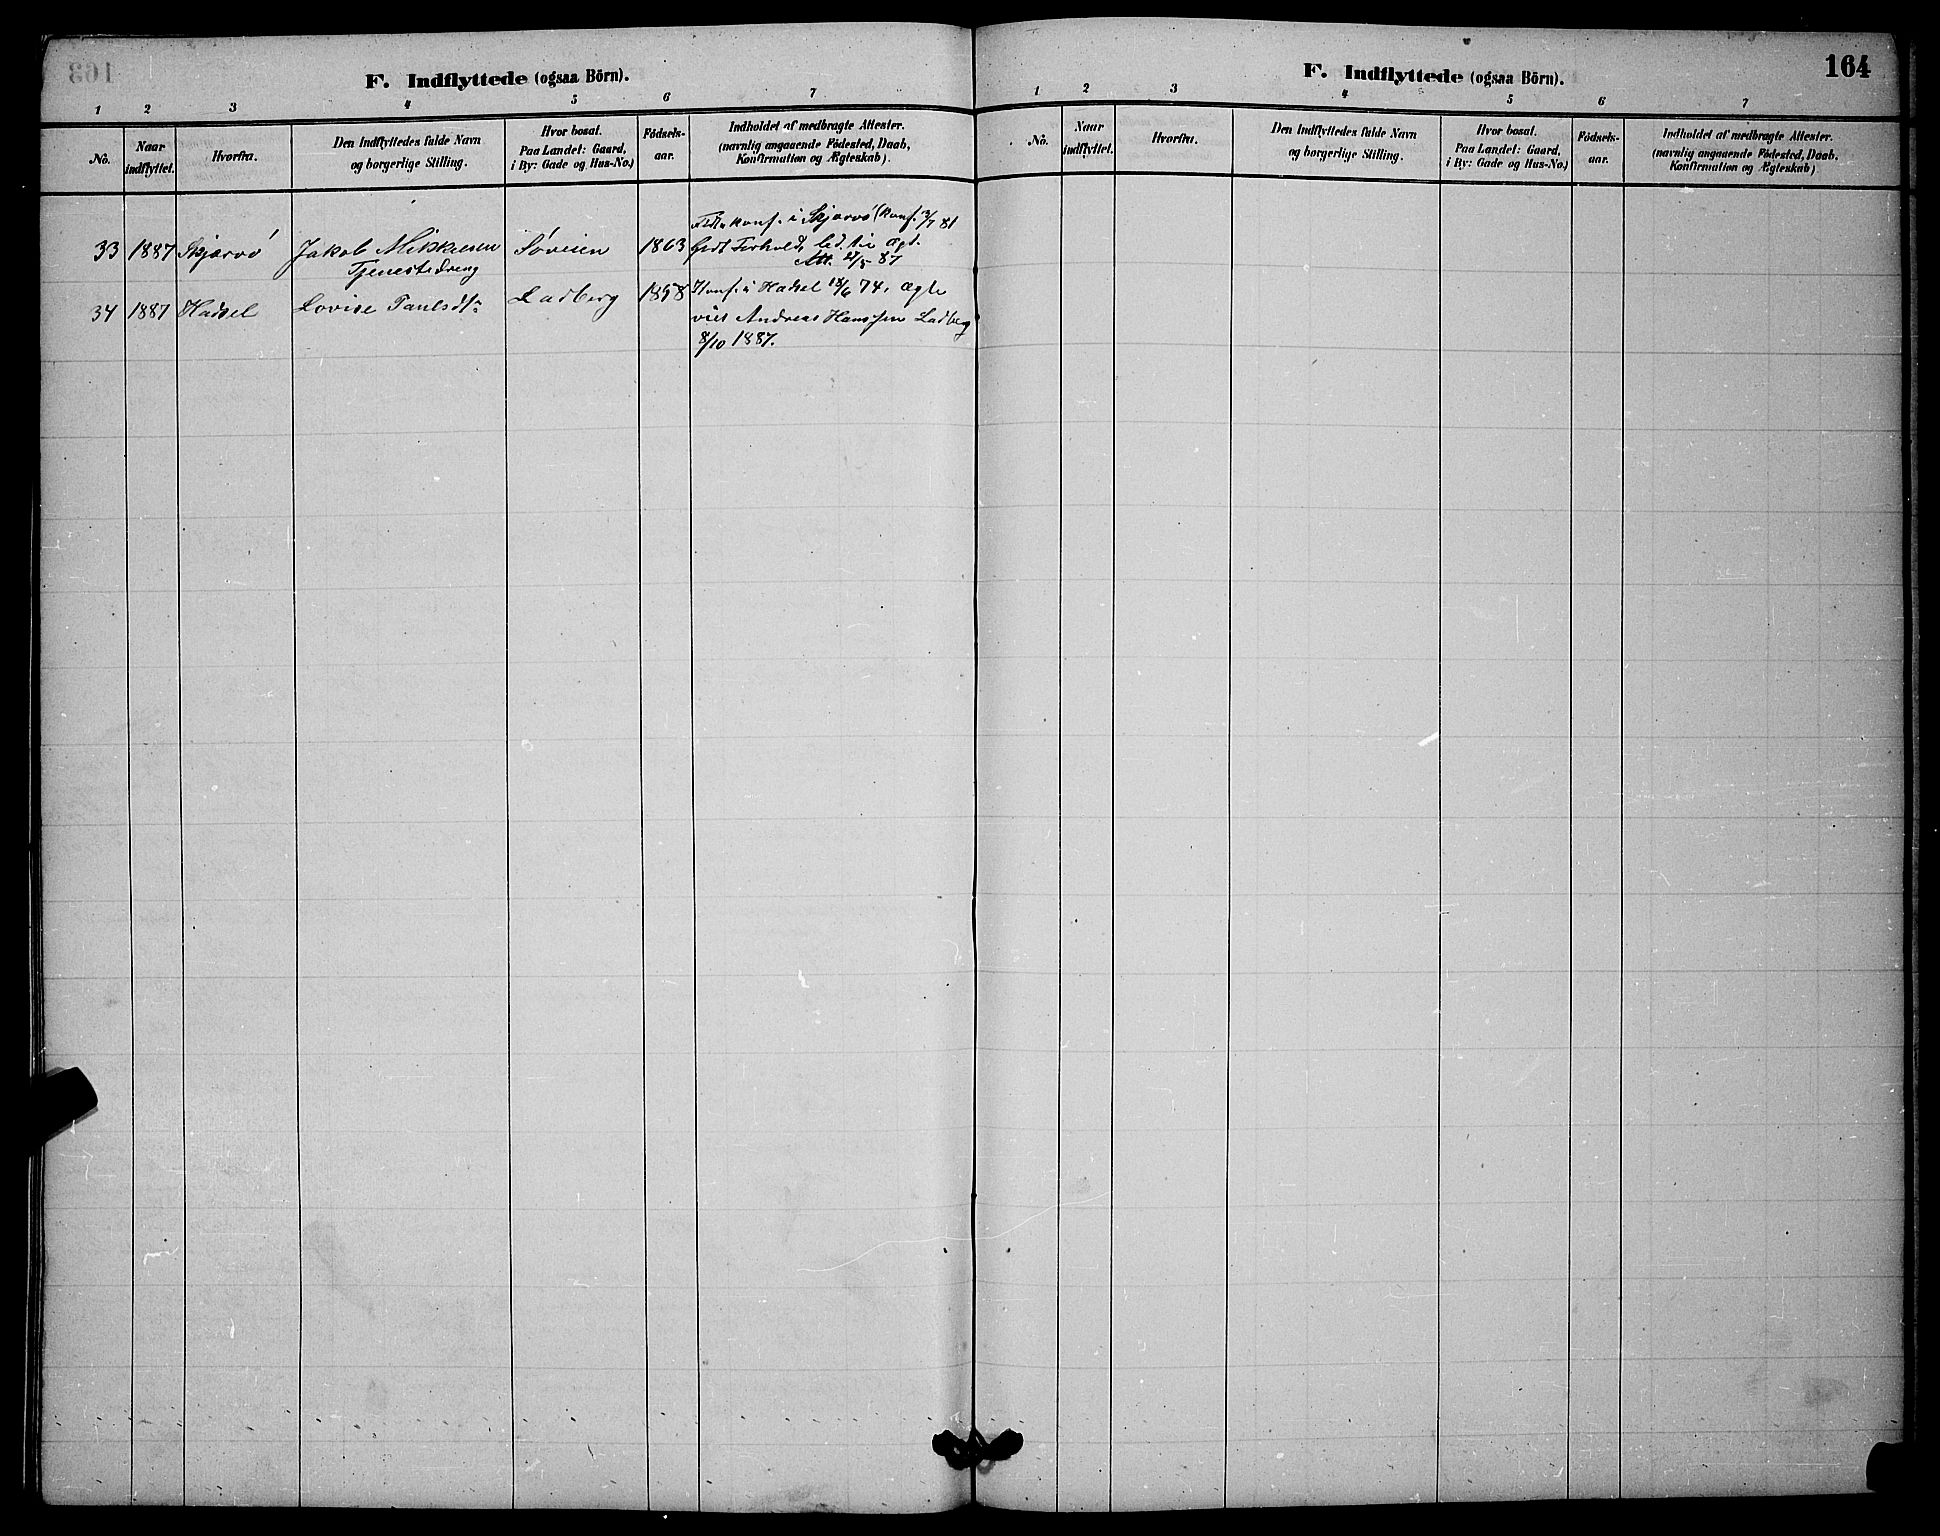 F. Indflyttede (ogsaa Börn).
1 2 3 4 5 6 7
No.
Naar indflyttet.
Hvorfra.
Den Indflyttedes fulde Navn
og borgerlige Stilling.
Hvor bosat.
Paa Landet: Gaard,
i By: Gade og Hus-No.)
Födsels-
aar.
Indholdet af medbragte Attester.
(navnlig angaaende Födested, Daab,
Konfirmation og Ægteskab).
33 1887 Skjærvö Jakob Mikkelsen Tjenestedreng 1863
konf. i Skjærvö (konf. 81
Godt Forhold, led. til ægt.
Att. 87
34 1887 Hadsel Lovise Paulsdtr Ladberg 1858
Konf. i Hadsel 18/6 74, ægte
viet Andreas Hanssen Ladberg
8/10 1887.
164
F. Indflyttede (ogsaa Börn).
1 2 3 4 5 6 7
No.
Naar
indflyttet.
Hvorfra.
Den Indflyttedes fulde Navn
og borgerlige Stilling.
Hvor bosat.
Paa Landet: Gaard,
i By: Gade og Hus-No.)
Födsels-
aar.
Indholdet af medbragte Attester.
(navnlig angaaende Födested, Daab,
Konfirmation og Ægteskab)